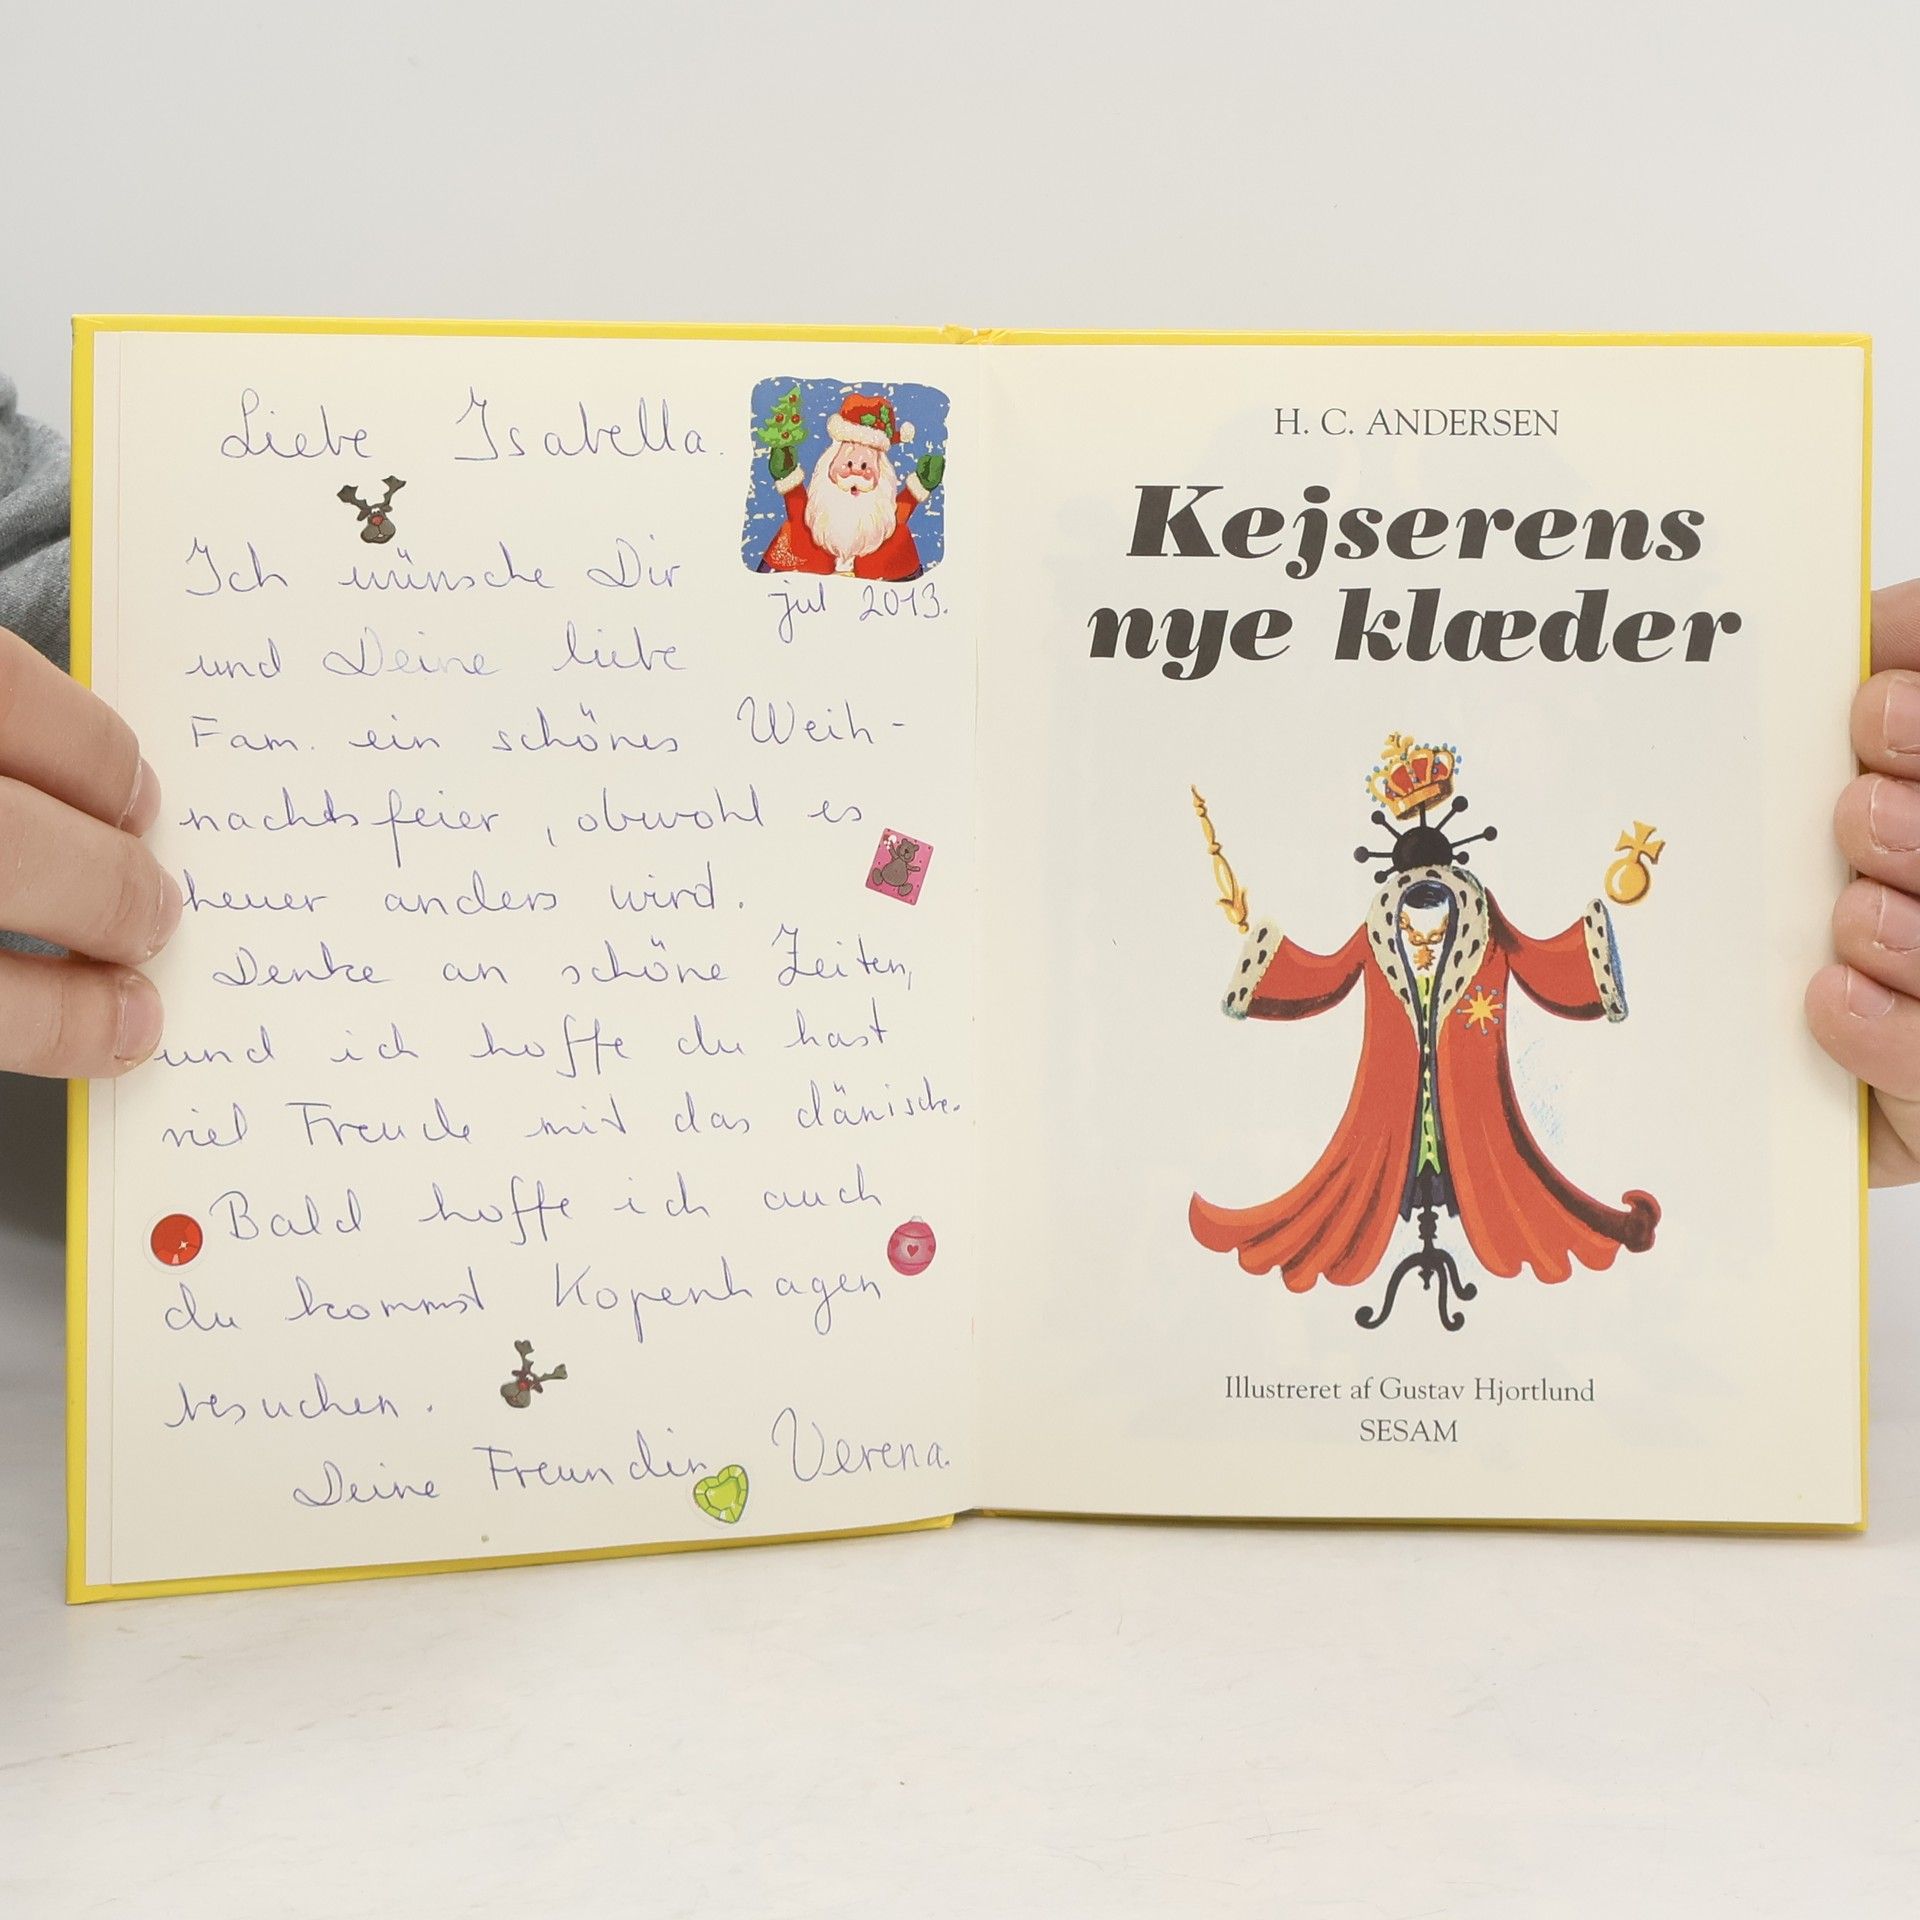 Liebe Isabella.
Ich wünsche Dir
jul 2013.
und Deine liebe
Fam. ein schönes Weih-
nachtsfeier, obwohl es
heuer anders wird.
Denke an schöne Zeiten,
und ich hoffe du hast
viel Freude mit das dänische.
Bald hoffe ich auch
du kommst Kopenhagen
besuchen.
Deine Freundin Verena.
H. C. ANDERSEN
Kejserens
nye klæder
Illustreret af Gustav Hjortlund
SESAM